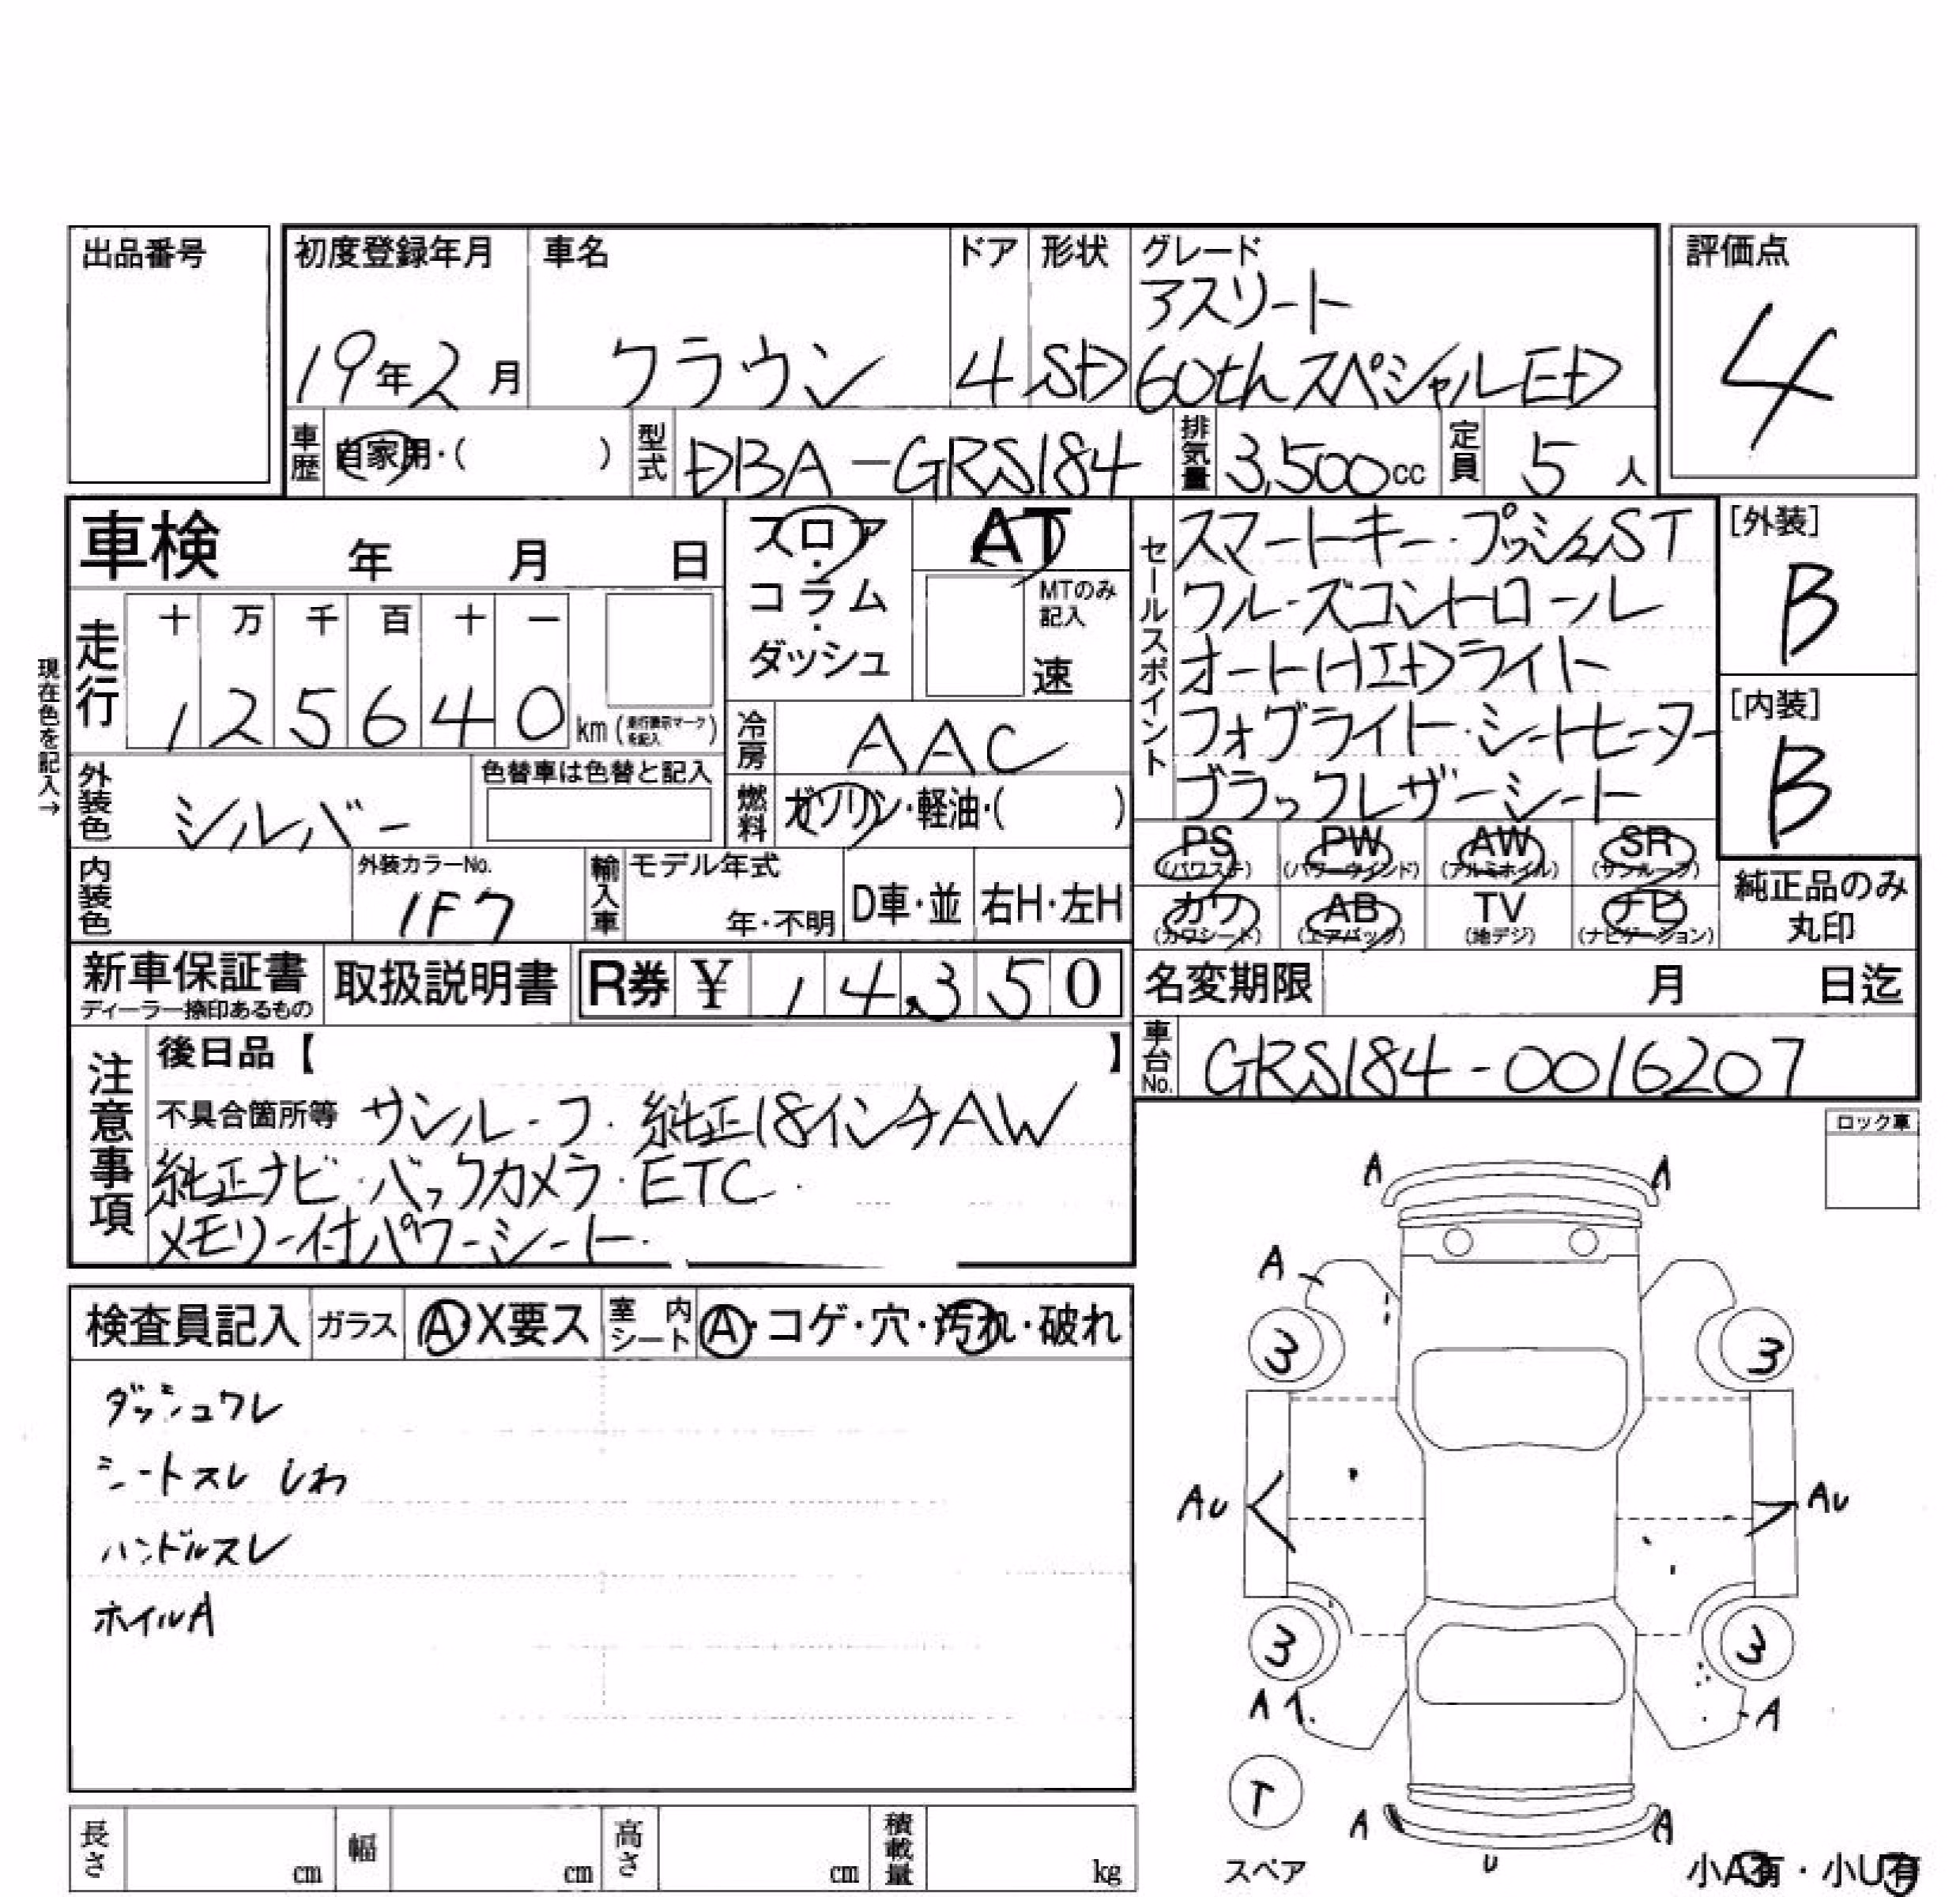 出品番号
初度登録年月 車名 ドア 形状 グレード 評価点
アスリート
19年2月 クラウン 4 SD 60thスペシャルED 4
車歴 自家用・( ) 型式 DBA-GRS184 排気量 3,500cc 定員 5人
車検 年 月 日
フロア・コラム・ダッシュ
AT
MTのみ記入
速
セールスポイント
スマートキー・プッシュST
クルーズコントロール
オートHIDライト
フォグライト・シートヒーター
ブラックレザーシート
[外装]
B
[内装]
B
現在色を記入→
走行 十 万 千 百 十 一
1 2 5 6 4 0 km (走行表示マークを記入)
冷房 AAC
外装色 シルバー 色替車は色替と記入
燃料 ガソリン・軽油・( )
PS (パワステ) PW (パワーウインド) AW (アルミホイル) SR (サンルーフ)
カワ (カワシート) AB (エアバック) TV (地デジ) ナビ (ナビゲーション)
純正品のみ
丸印
内装色 外装カラーNo. 1F7 輸入車 モデル年式 年・不明 D車・並 右H・左H
新車保証書
ディーラー捺印あるもの
取扱説明書 R券 ¥ 14,350
名変期限 月 日迄
車台No. GRS184-0016207
注意事項
後日品【 】
不具合箇所等 サンルーフ・純正18インチAW
純正ナビ・バックカメラ・ETC・
メモリー付パワーシート・
ロック車
検査員記入 ガラス A・X要ス 室内シート A・コゲ・穴・汚れ・破れ
ダッシュワレ
シートスレ しわ
ハンドルスレ
ホイルA
A A
A
3 3
AU AU
3 3
A1 A
T
スペア
A A
U
小A有・小U有
長さ cm 幅 cm 高さ cm 積載量 kg